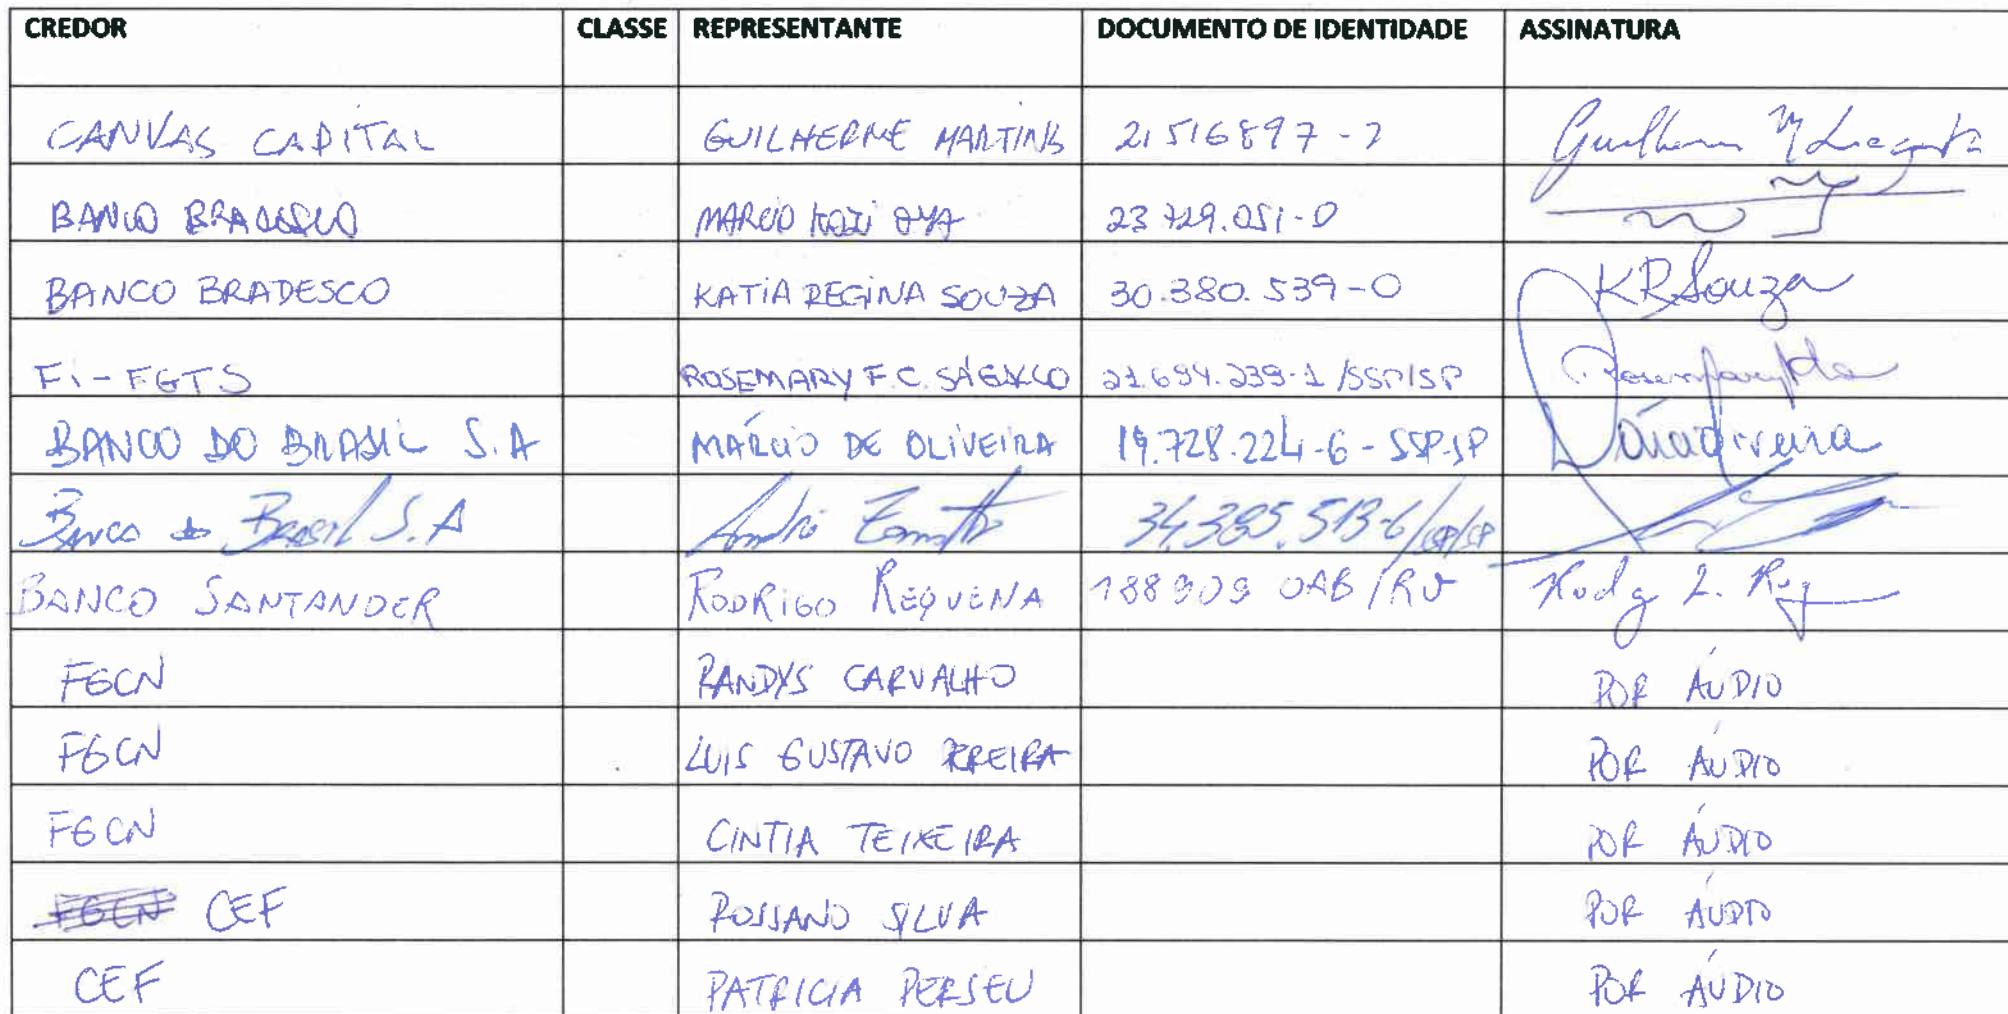 CREDOR CLASSE REPRESENTANTE DOCUMENTO DE IDENTIDADE ASSINATURA
CANVAS CAPITAL GUILHERME MARTINS 21516897-7
BANCO BRADESCO MARCIO KOZI OYA 23 729.051-0
BANCO BRADESCO KATIA REGINA SOUZA 30.380.539-0 KRSouza
FI-FGTS ROSEMARY F.C. 21.694.239-1/SSP/SP
BANCO DO BRASIL S.A MÁRCIO DE OLIVEIRA 19.728.224-6-SSP-SP
Banco do Brasil S.A André 34.385.513-6/SSP/SP
BANCO SANTANDER RODRIGO REQUENA 188909 OAB/RJ
FGCN RANDYS CARVALHO POR ÁUDIO
FGCN LUIS GUSTAVO PEREIRA POR ÁUDIO
FGCN CINTIA TEIXEIRA POR ÁUDIO
CEF ROSSANO SILVA POR ÁUDIO
CEF PATRICIA PERSEU POR ÁUDIO